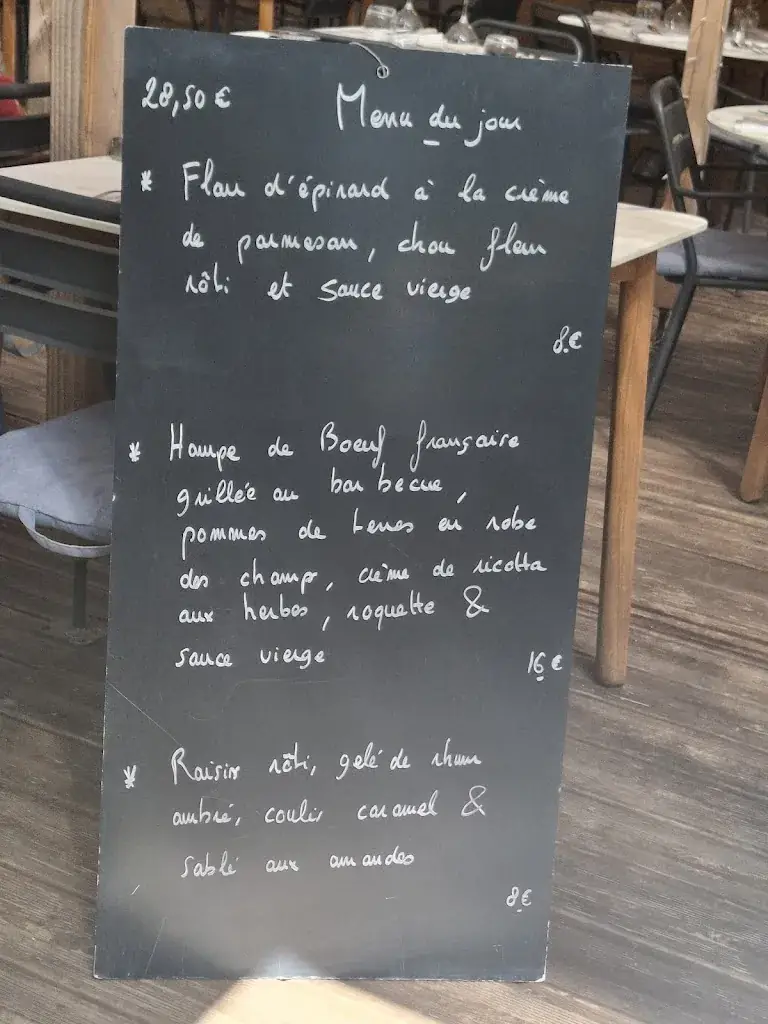 28,50 €
Menu du jour
* Flan d'épinard à la crème
de parmesan, chou fleur
rôti et sauce vierge
8€
* Hampe de Boeuf française
grillée au barbecue,
pommes de terres en robe
des champs, crème de ricotta
aux herbes, roquette &
sauce vierge
16 €
* Raisin rôti, gelé de rhum
ambré, coulis caramel &
sablé aux amandes
8€